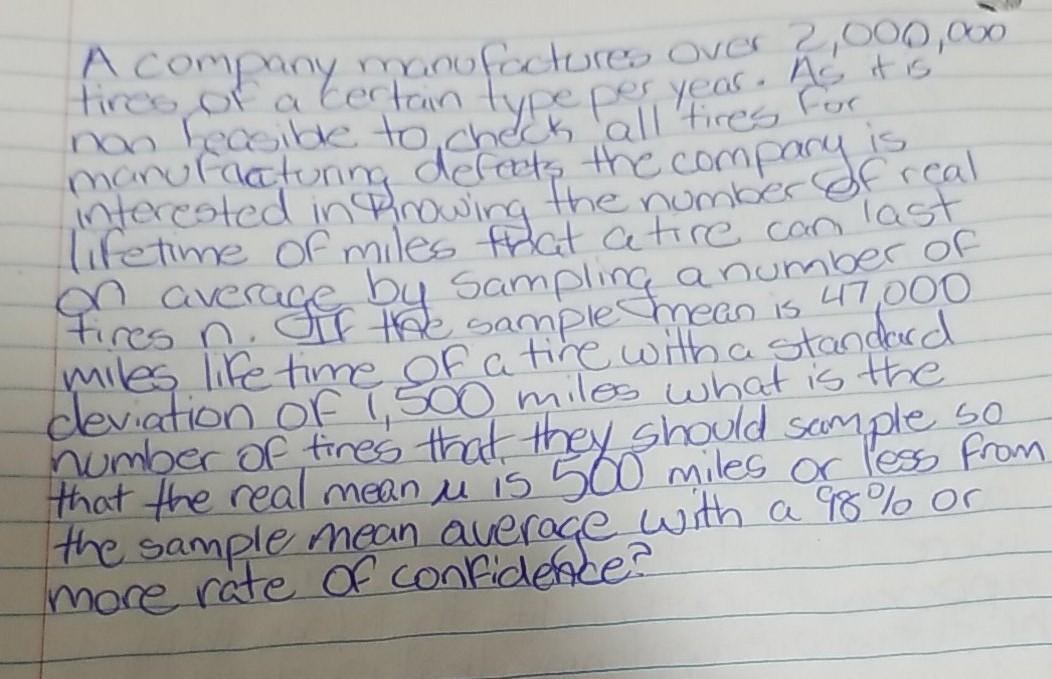 A company manufactures over 2,000,000
tires of a certain type per year. As it is
non feasible to check all tires for
manufacturing defects the company is
interested in knowing the number of real
lifetime of miles that a tire can last
on average by sampling a number of
tires n. If the sample mean is 47,000
miles life time of a tire with a standard
deviation of 1,500 miles what is the
number of tires that they should sample so
that the real mean μ is 500 miles or less from
the sample mean average with a 98% or
more rate of confidence?